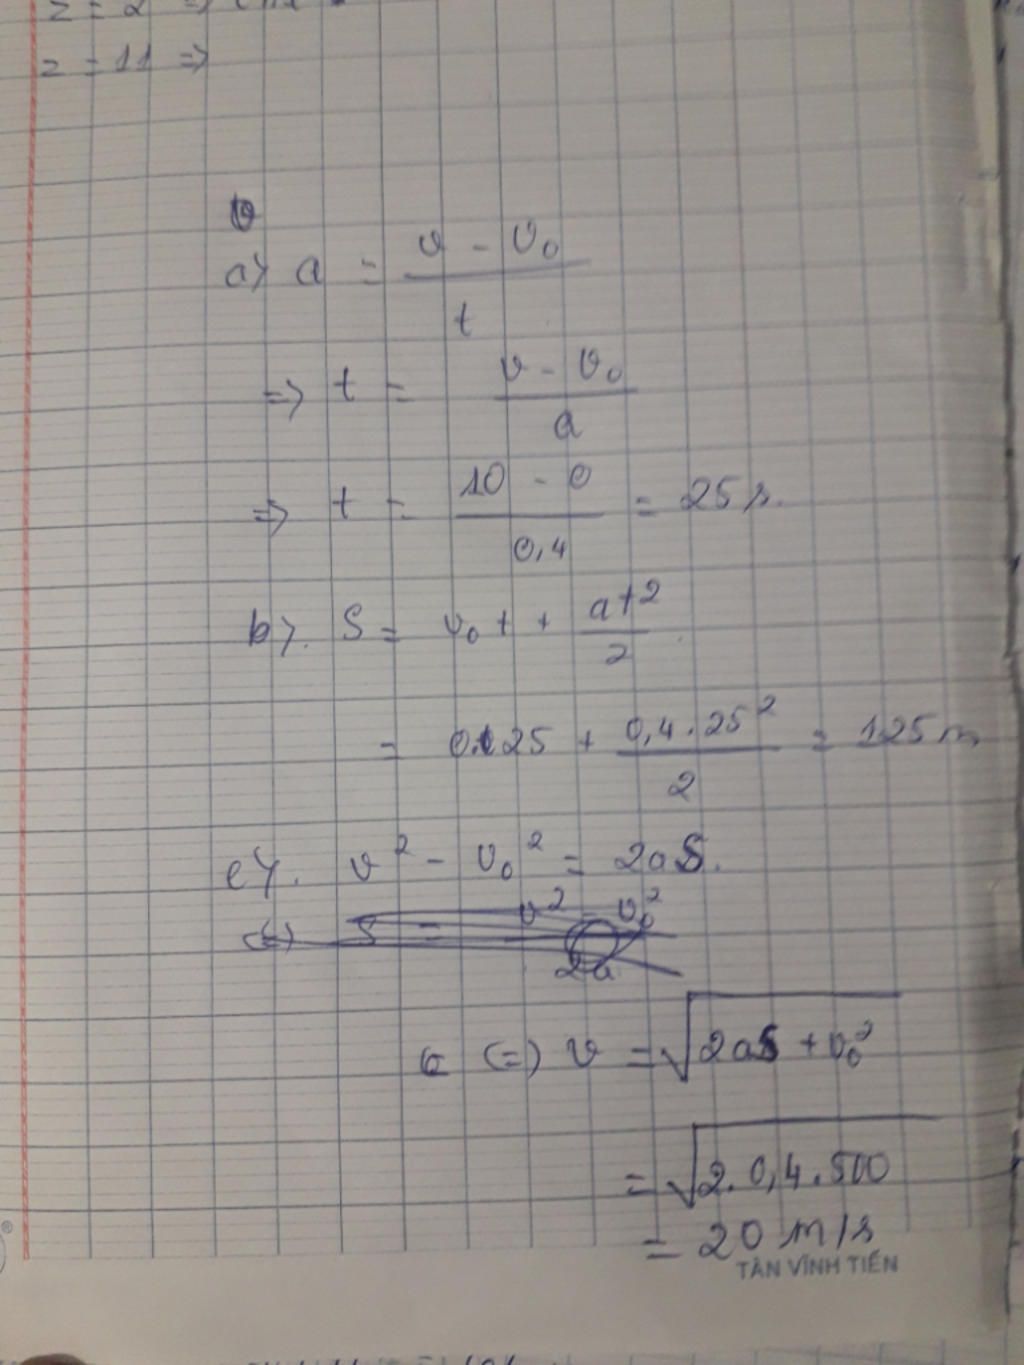 z = 2 =>
z = 11 =>
a) a = (v - v₀)/t
=> t = (v - v₀)/a
=> t = (10 - 0)/0,4 = 25 s.
b). S = v₀t + at²/2
= 0.25 + (0,4.25²)/2 = 125 m
c). v² - v₀² = 2aS.
(=) S = (v² - v₀²)/2a
(=) v = √(2aS + v₀²)
= √(2.0,4.500)
= 20 m/s
TÂN VĨNH TIẾN
®